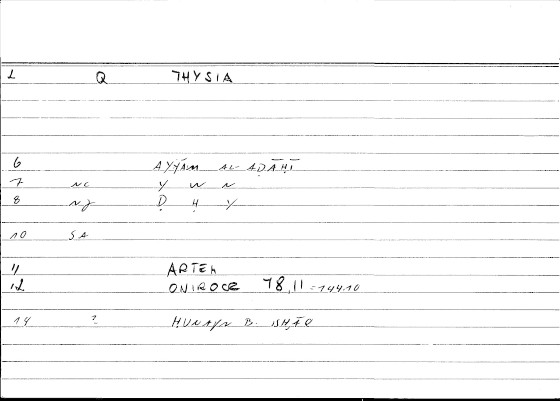 1 Q THYSIA
6 AYYĀM AL AḌĀḤĪ
7 NC Y W N
8 NJ Ḍ Ḥ Y
10 SA
11 ARTEM
12 ONIROCR 78,11 = 144.10
14 ? HUNAYN B. ISḤĀQ